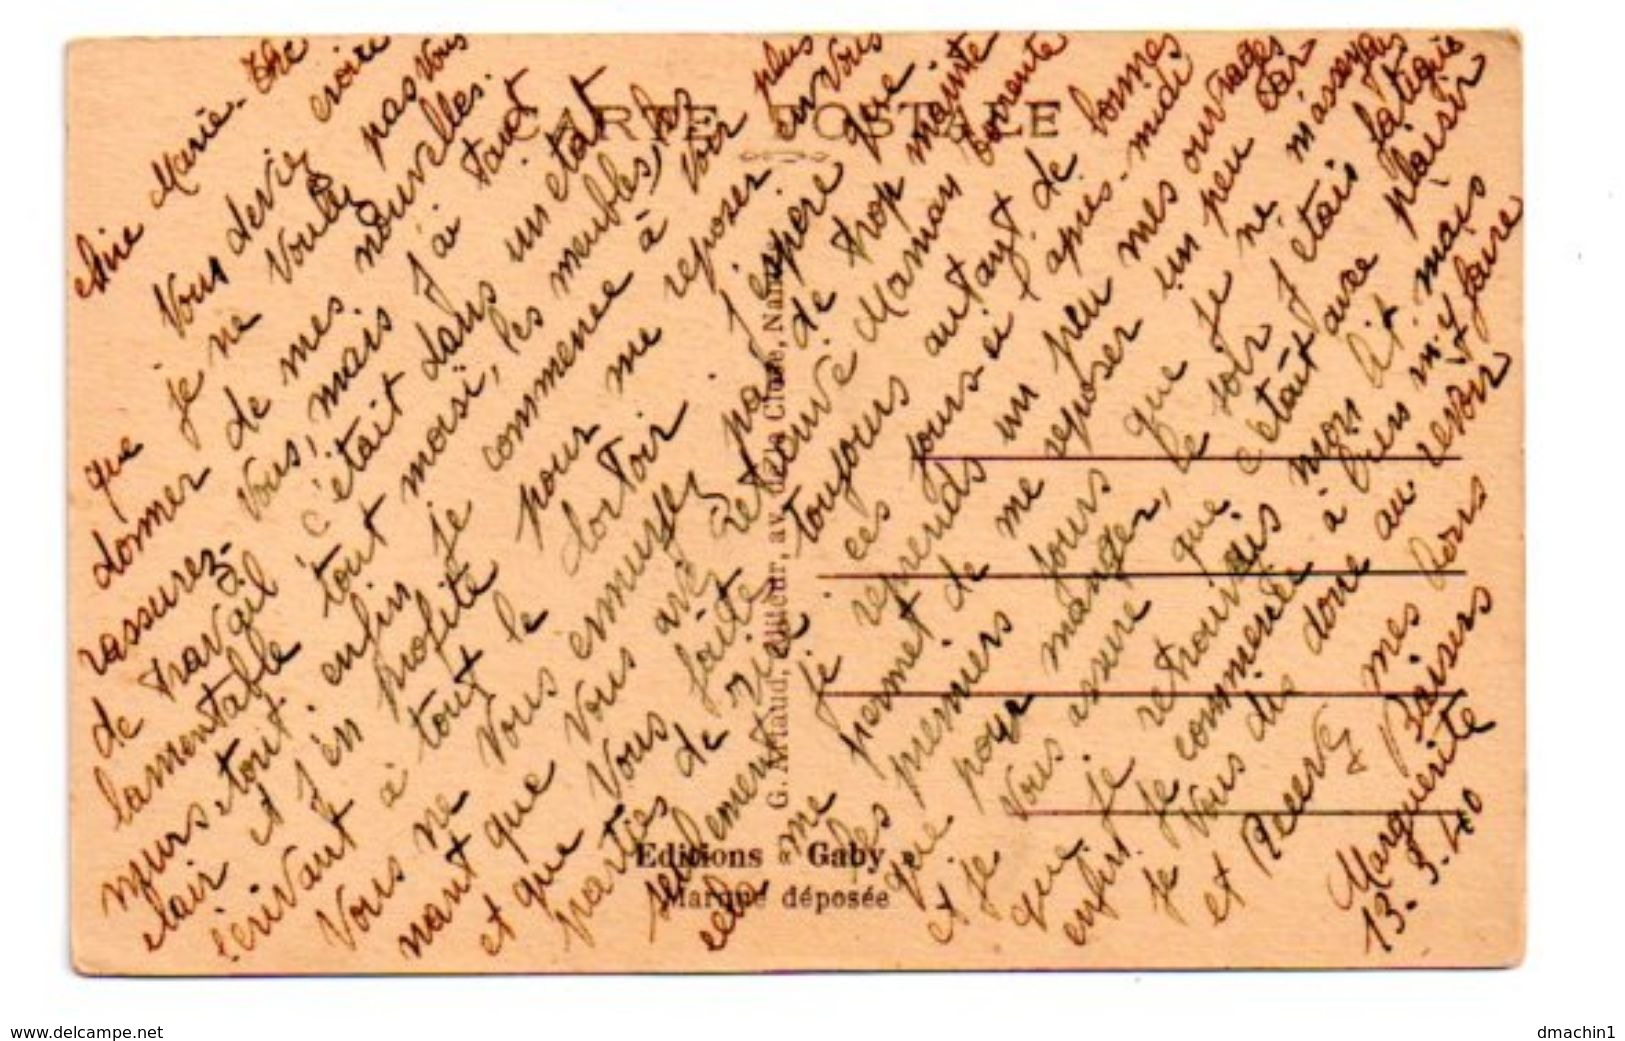 CARTE POSTALE
Chère Marie-Thé
Vous devez croire
que je ne voulez pas vous
donner de mes nouvelles.
rassurez-vous, mais j'ai tant
de travail c'était dans un état
lamentable tout moisi, les meubles, les
murs, tout enfin je commence à voir plus
clair et j'en profite pour me reposer en vous
écrivant à tout le dortoir j'espère que
vous ne vous ennuyez pas de trop mainte
nant que vous avez retrouvé Maman
et que vous faite toujours autant de bonnes
parties de
seulement ces jours-ci l'après-midi
je reprends un peu mes ouvrages car
cela me permet de me reposer un peu
les premiers jours que je ne m'asseyais
que pour manger, le soir j'étais fatiguée
et je vous assure que c'était avec plaisir
que je retrouvais mon lit mais
enfin je commence à bien m'y faire
je vous dis donc au revoir
et Recevez mes bons
Baisers
Marguerite
13-3-40
G. Artaud, éditeur, av. de la Close, Nantes
Editions « Gaby »
Marque déposée
www.delcampe.net
dmachin1